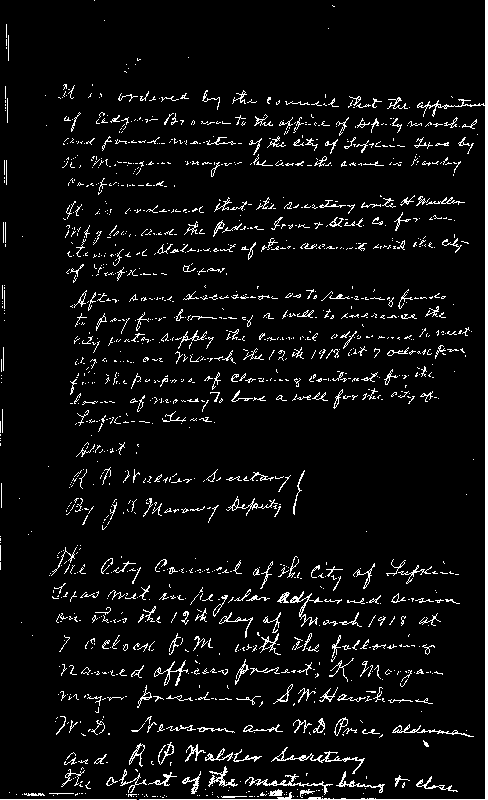 It is ordered by the council that the appointmen
of Edgar Brown to the office of Deputy marshal
and pound master of the City of Lufkin Texas by
K. Morgan mayor be and the same is hereby
confirmed.
It is ordered that the secretary write H Mueller
Mfg Co. and the Peden Iron & Steel Co. for an
itemized statement of their accounts with the city
of Lufkin Texas.
After some discussion as to raising funds
to pay for boring a well to increase the
city water supply the council adjourned to meet
again on March the 12th 1918 at 7 oclock P.m.
for the purpose of closing contract for the
loan of money to bore a well for the city of
Lufkin Texas.
Attest:
R. P. Walker Secretary
By J. T. Maroney Deputy
The City Council of the City of Lufkin
Texas met in regular adjourned session
on this the 12th day of March 1918 at
7 oclock P.M. with the following
named officers present; K. Morgan
mayor presiding, S.W. Hawthorne
W.D. Newsom and W.D. Price, alderman
and R.P. Walker Secretary
The object of the meeting being to close